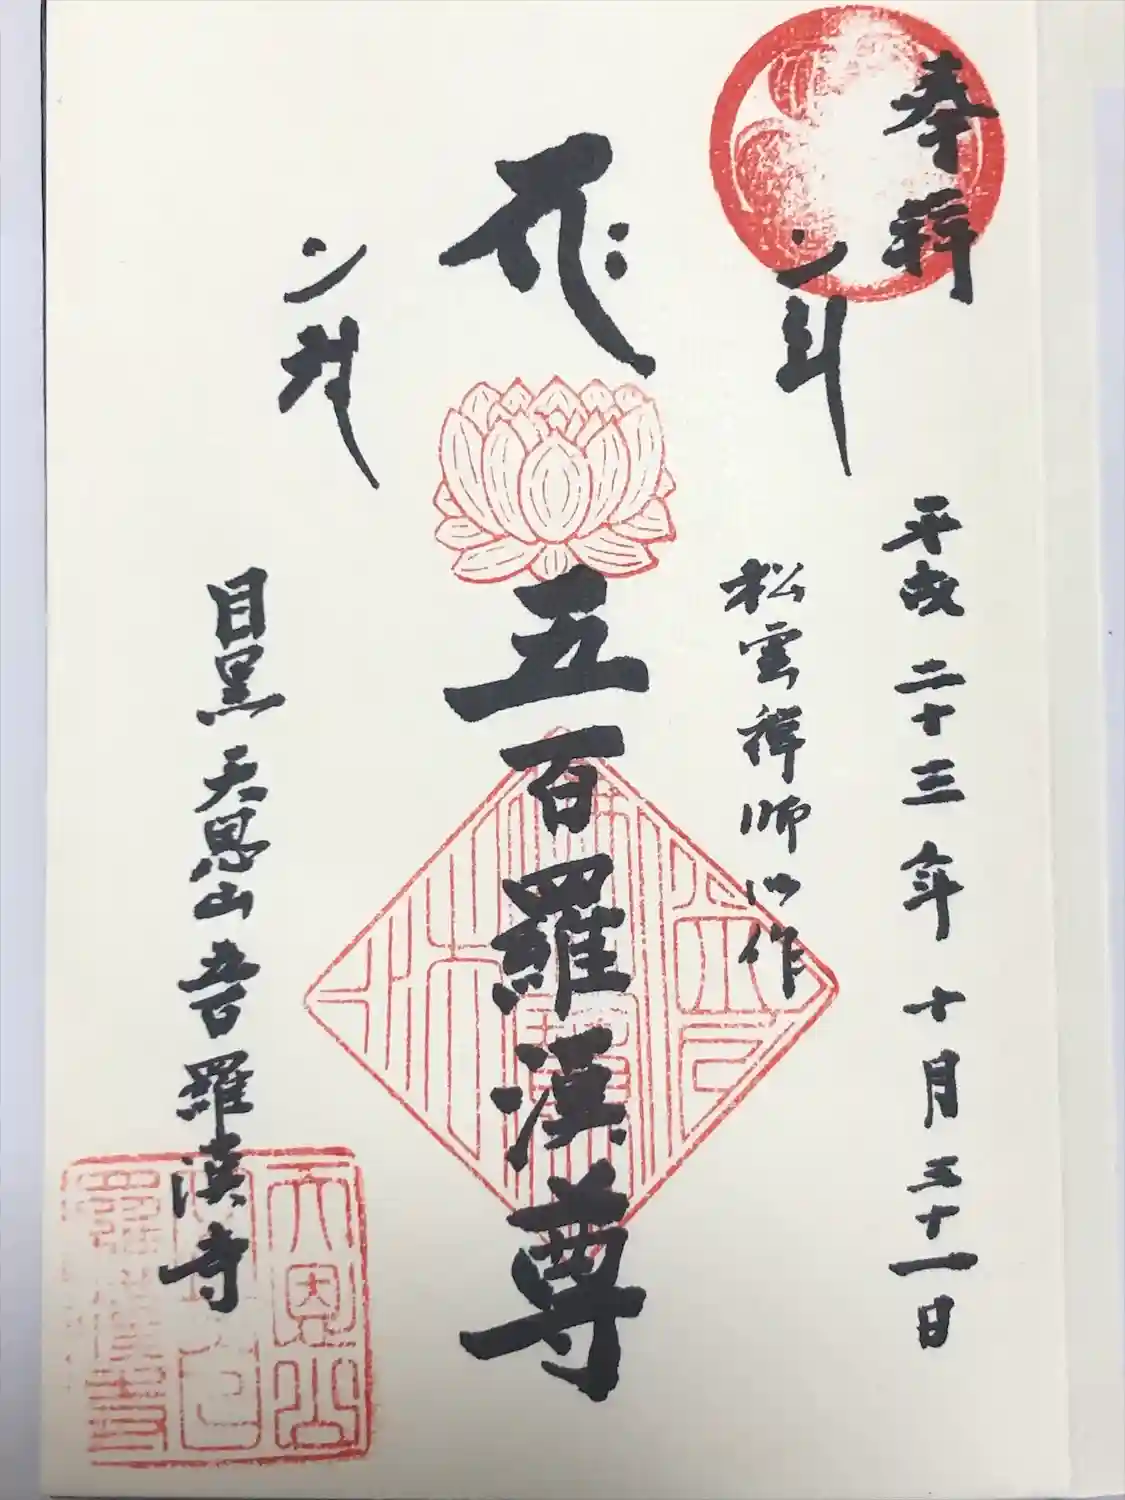 奉拝
平成二十三年十月三十一日
松雲禅師作
五百羅漢尊
目黒天恩山五百羅漢寺
天恩山